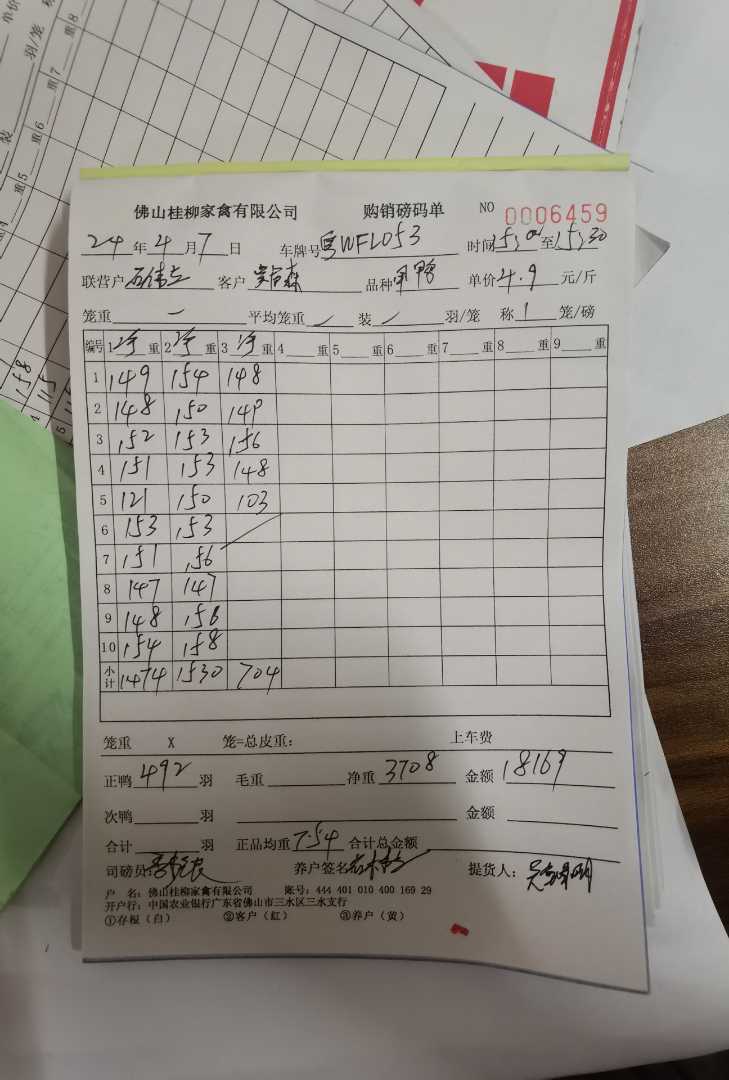 佛山桂柳家禽有限公司 购销磅码单 NO 0006459
24 年 4 月 7 日 车牌号 粤WFL053 时间 至 15:30
联营户 客户 品种 单价 4.9 元/斤
笼重 一 平均笼重 / 装 / 羽/笼 称 1 笼/磅
编号 1 重 2 重 3 重 4 重 5 重 6 重 7 重 8 重 9 重
1 149 154 148
2 148 150 149
3 152 153 156
4 151 153 148
5 121 150 103
6 153 153
7 151 156
8 147 147
9 148 156
10 154 158
小计 1474 1530 704
笼重 X 笼=总皮重: 上车费
正鸭 492 羽 毛重 净重 3708 金额 18169
次鸭 羽 金额
合计 羽 正品均重 7.54 合计总金额
司磅员: 养户签名 提货人:
户 名: 佛山桂柳家禽有限公司 账号: 444 401 010 400 169 29
开户行: 中国农业银行广东省佛山市三水区三水支行
①存根（白） ②客户（红） ③养户（黄）